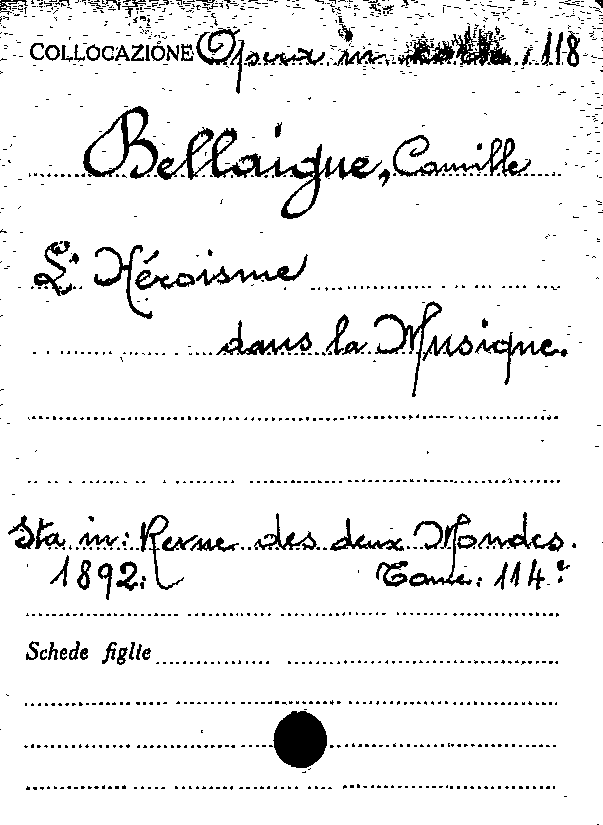 COLLOCAZIONE Opera in 118
Bellaigue, Camille
L'Héroisme
dans la Musique.
Sta in: Revue des deux Mondes.
1892. Tome: 114e
Schede figlie